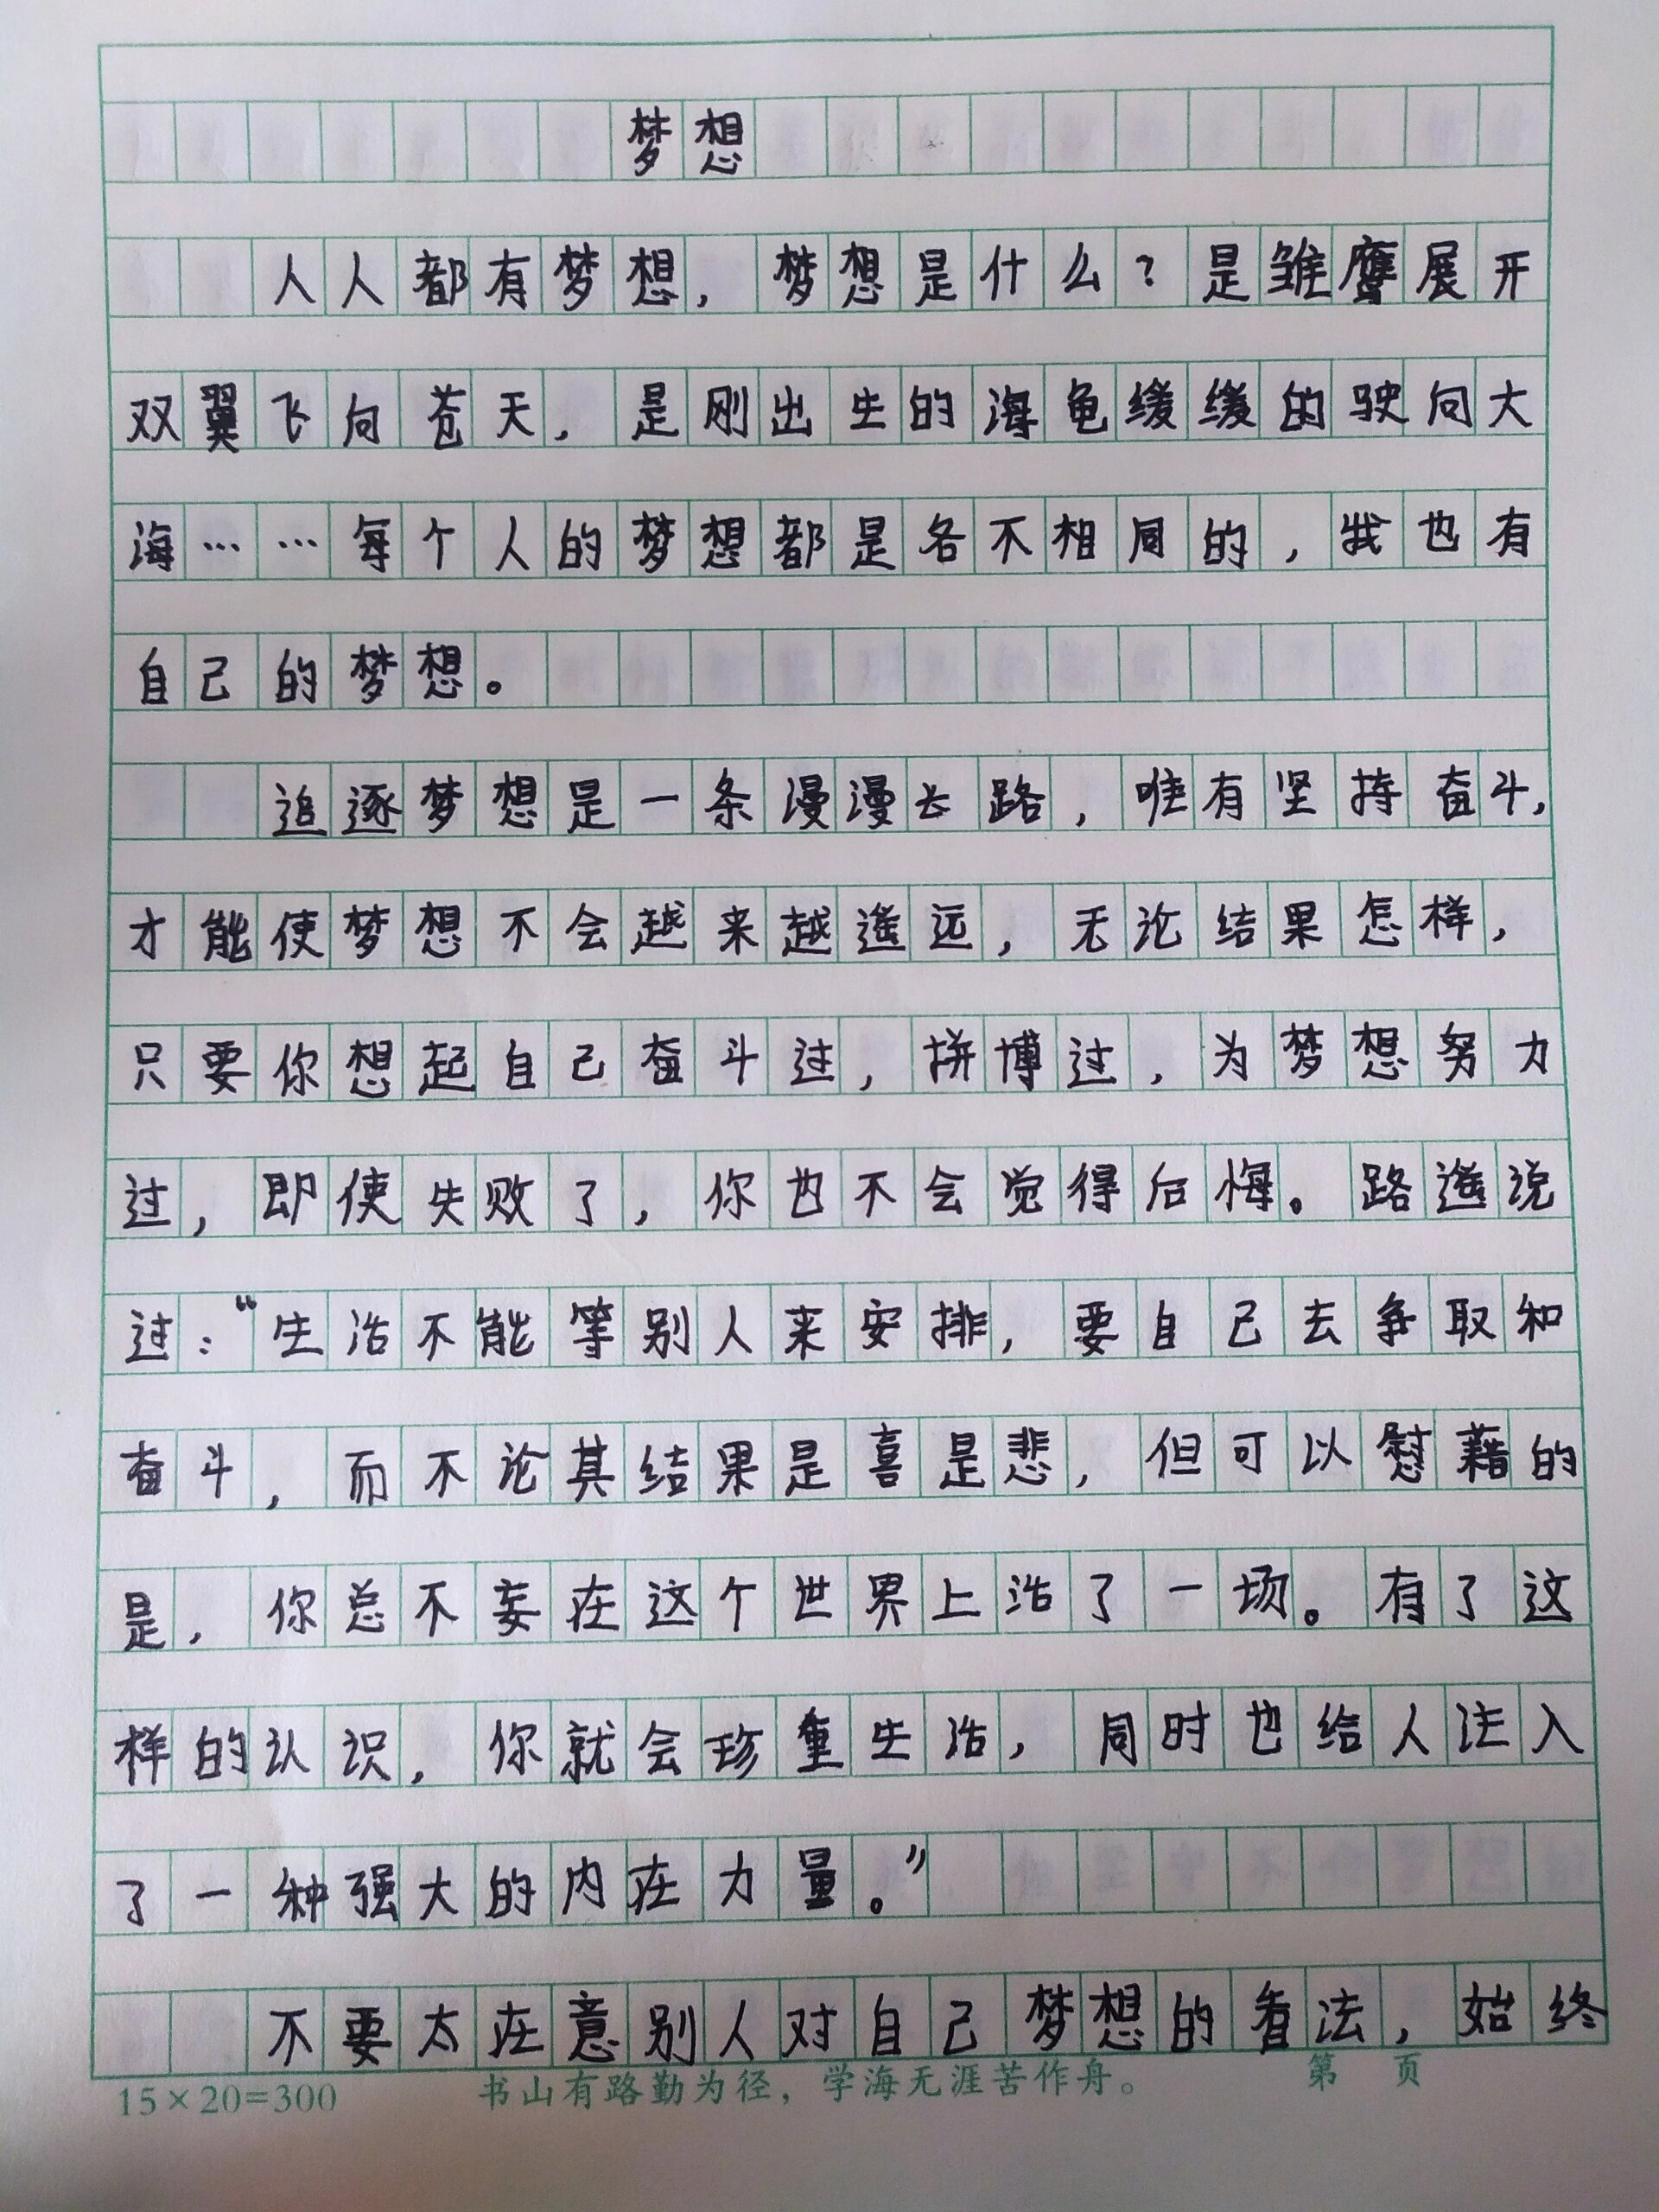 梦想
人人都有梦想，梦想是什么？是雏鹰展开
双翼飞向苍天，是刚出生的海龟缓缓的驶向大
海……每个人的梦想都是各不相同的，我也有
自己的梦想。
追逐梦想是一条漫漫长路，唯有坚持奋斗，
才能使梦想不会越来越遥远，无论结果怎样，
只要你想起自己奋斗过，拼博过，为梦想努力
过，即使失败了，你也不会觉得后悔。路遥说
过：“生活不能等别人来安排，要自己去争取和
奋斗，而不论其结果是喜是悲，但可以慰藉的
是，你总不妄在这个世界上活了一场。有了这
样的认识，你就会珍重生活，同时也给人注入
了一种强大的内在力量。”
不要太在意别人对自己梦想的看法，始终
15×20=300 书山有路勤为径，学海无涯苦作舟。 第 页